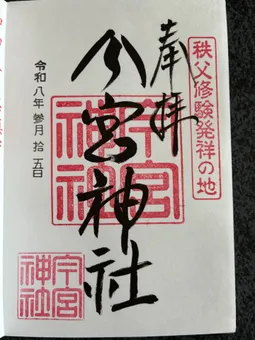 秩父修験発祥の地
奉拝
今宮神社
今宮神社
令和八年参月拾五日
今宮神社